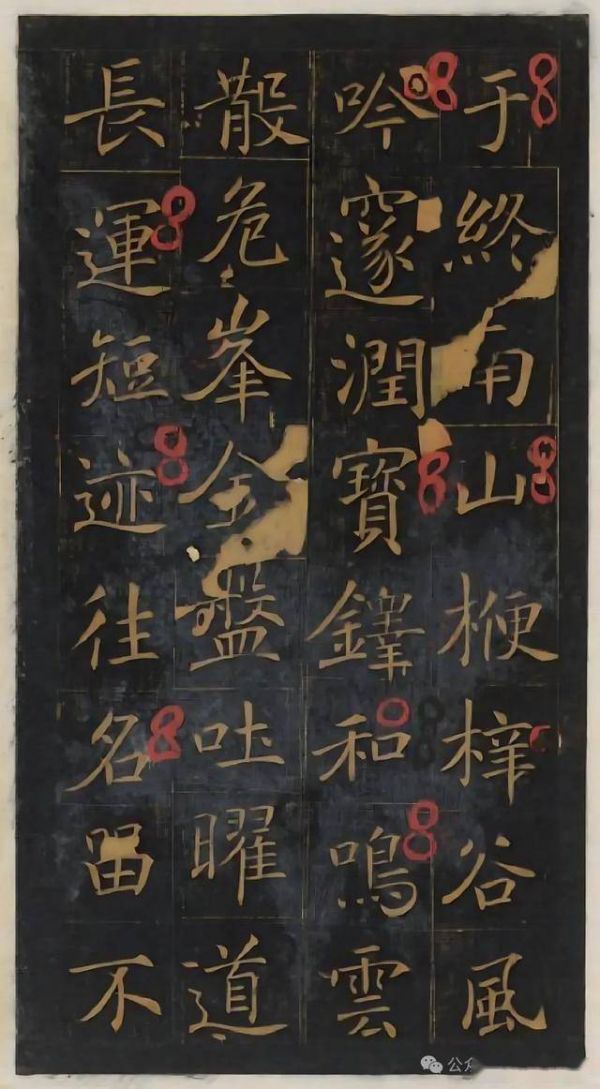 于終南山楩梓谷風
吟邃澗寶鐸和鳴雲
散危峯金盤吐曜道
長運短迹往名留不
公